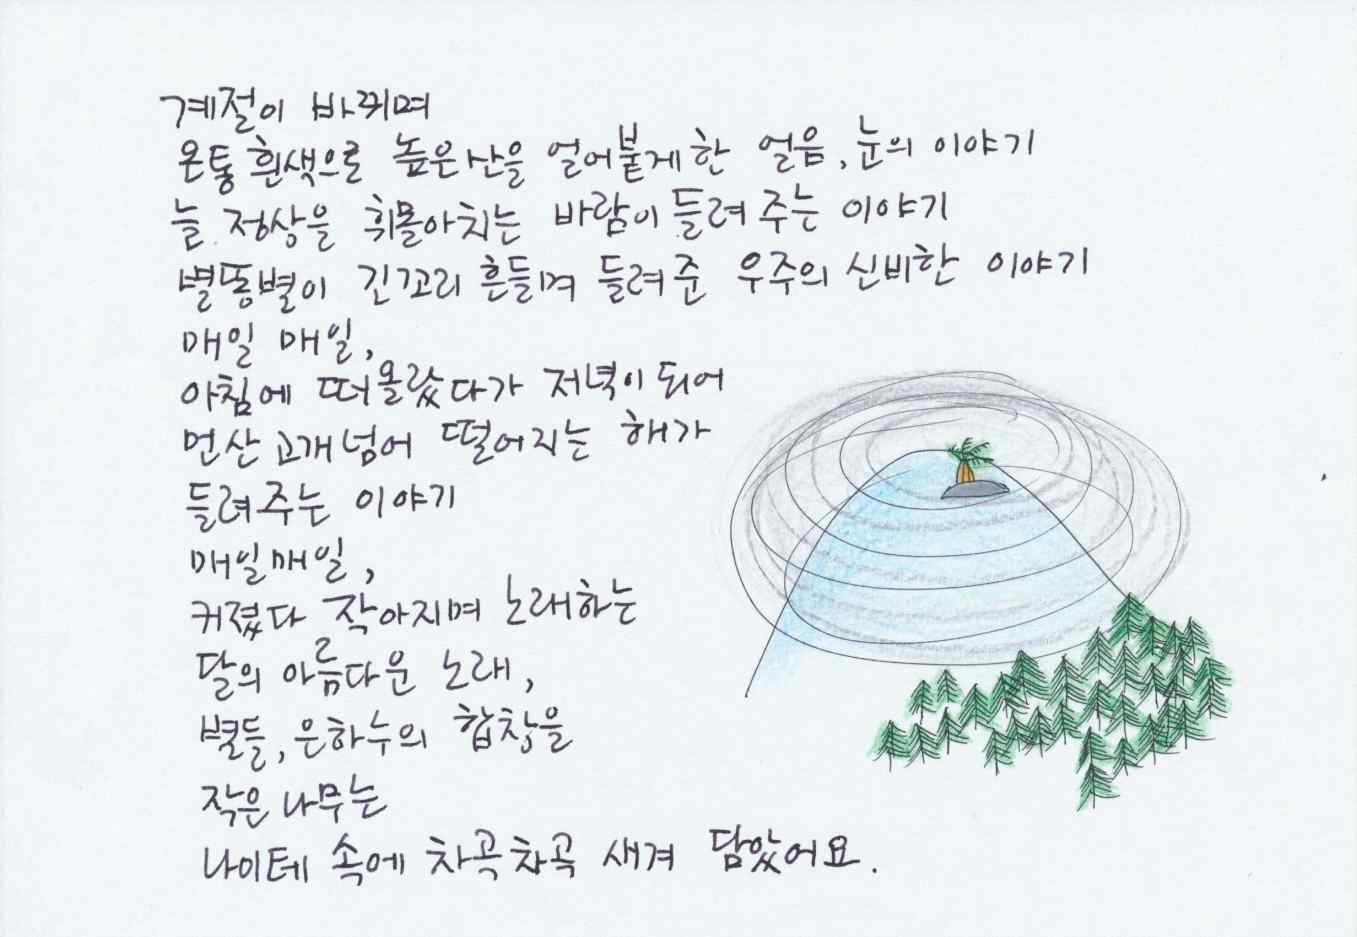 계절이 바뀌며
온통 흰색으로 높은산을 얼어붙게 한 얼음, 눈의 이야기
늘 정상을 휘몰아치는 바람이 들려 주는 이야기
별똥별이 긴꼬리 흔들며 들려준 우주의 신비한 이야기
매일 매일,
아침에 떠올랐다가 저녁이 되어
먼산 고개넘어 떨어지는 해가
들려주는 이야기
매일매일,
커졌다 작아지며 노래하는
달의 아름다운 노래,
별들, 은하수의 합창을
작은 나무는
나이테 속에 차곡차곡 새겨 담았어요.